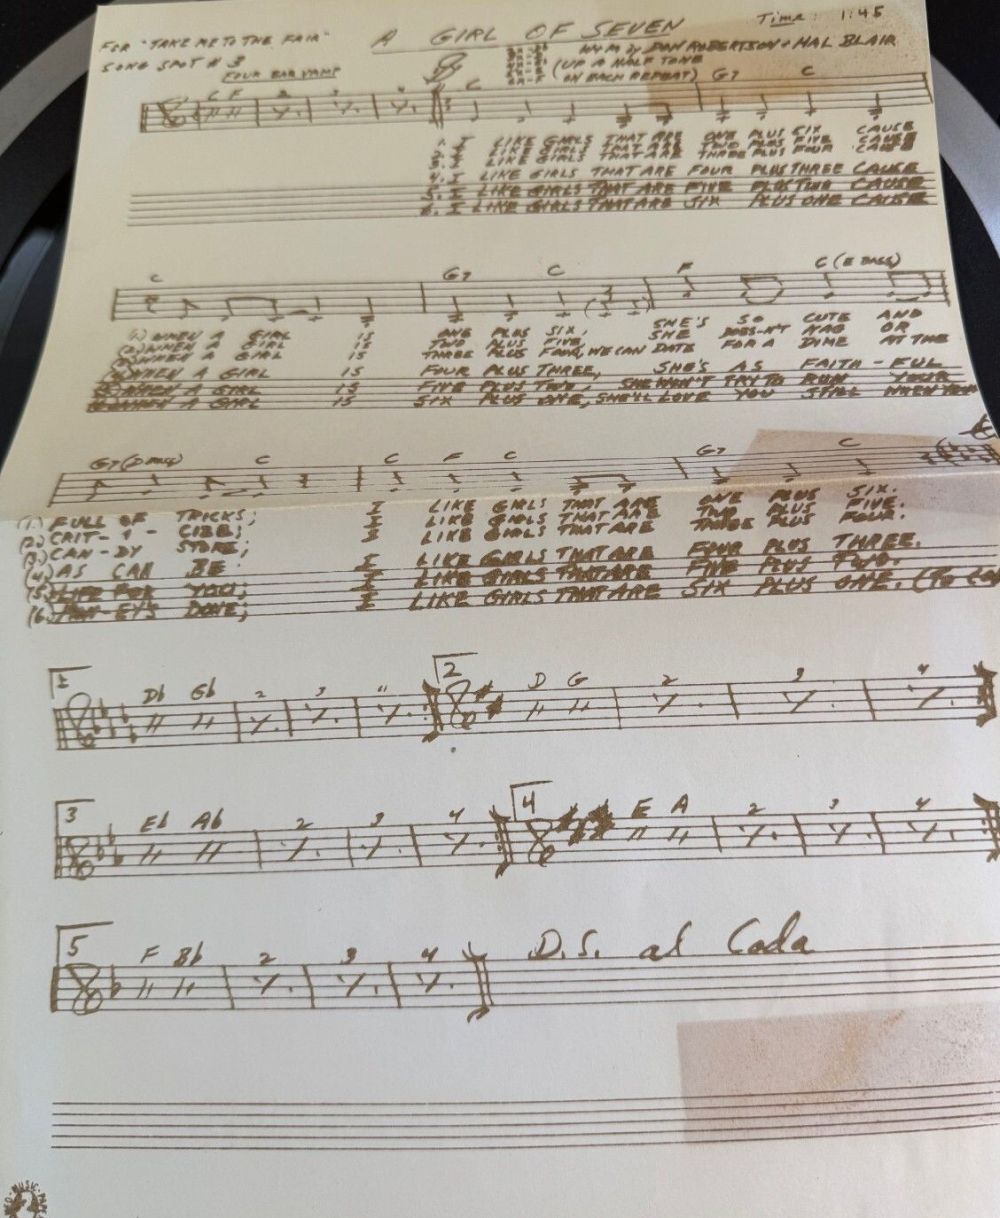 FOR "TAKE ME TO THE FAIR" A GIRL OF SEVEN TIME: 1:45
SONG SPOT # 3 W+M by DON ROBERTSON + HAL BLAIR
FOUR BAR VAMP (UP A HALF TONE
ON EACH REPEAT)
C F 2 3 4 C G7 C
1. I LIKE GIRLS THAT ARE ONE PLUS SIX CAUSE
2. I LIKE GIRLS THAT ARE TWO PLUS FIVE CAUSE
3. I LIKE GIRLS THAT ARE THREE PLUS FOUR CAUSE
4. I LIKE GIRLS THAT ARE FOUR PLUS THREE CAUSE
5. I LIKE GIRLS THAT ARE FIVE PLUS TWO CAUSE
6. I LIKE GIRLS THAT ARE SIX PLUS ONE CAUSE
C G7 C F C (E BASS)
(1) WHEN A GIRL IS ONE PLUS SIX, SHE'S SO CUTE AND
(2) WHEN A GIRL IS TWO PLUS FIVE SHE DOES-N'T NAG OR
(3) WHEN A GIRL IS THREE PLUS FOUR, WE CAN DATE FOR A DIME AT THE
(4) WHEN A GIRL IS FOUR PLUS THREE, SHE'S AS FAITH-FUL
(5) WHEN A GIRL IS FIVE PLUS TWO, SHE WON'T TRY TO RUN YOUR
(6) WHEN A GIRL IS SIX PLUS ONE, SHE'LL LOVE YOU STILL WHEN YOUR
G7 (D BASS) C C F C G7 C
(1.) FULL OF TRICKS; I LIKE GIRLS THAT ARE ONE PLUS SIX.
(2.) CRIT-I-CIZE; I LIKE GIRLS THAT ARE TWO PLUS FIVE.
(3.) CAN-DY STORE; I LIKE GIRLS THAT ARE THREE PLUS FOUR.
(4.) AS CAN BE. I LIKE GIRLS THAT ARE FOUR PLUS THREE.
(5.) LIFE FOR YOU; I LIKE GIRLS THAT ARE FIVE PLUS TWO.
(6.) MON-EY'S DONE; I LIKE GIRLS THAT ARE SIX PLUS ONE.
1 Db Gb 2 3 4 2 D G 2 3 4
3 Eb Ab 2 3 4 4 E A 2 3 4
5 F Bb 2 3 4 D.S. al Coda